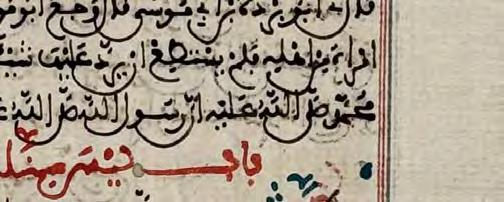 ابو بردة بن ابي موسى قال وجع ابو مو
امراة من اهله فلم يستطع ان يرد عليها شيئا
محمد صلى الله عليه ان رسول الله صلى الله
باب ليس منا